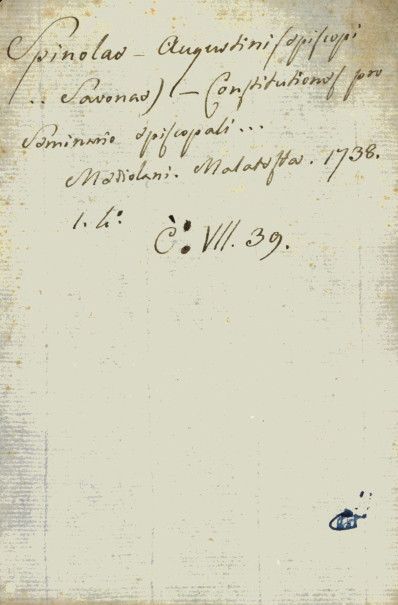 Spinolae - Augustini (episcopi
.. Savonae) - Constitutiones pro
Seminario episcopali...
Mediolani. Malatesta. 1738.
1. 4:°
C: VII. 39.